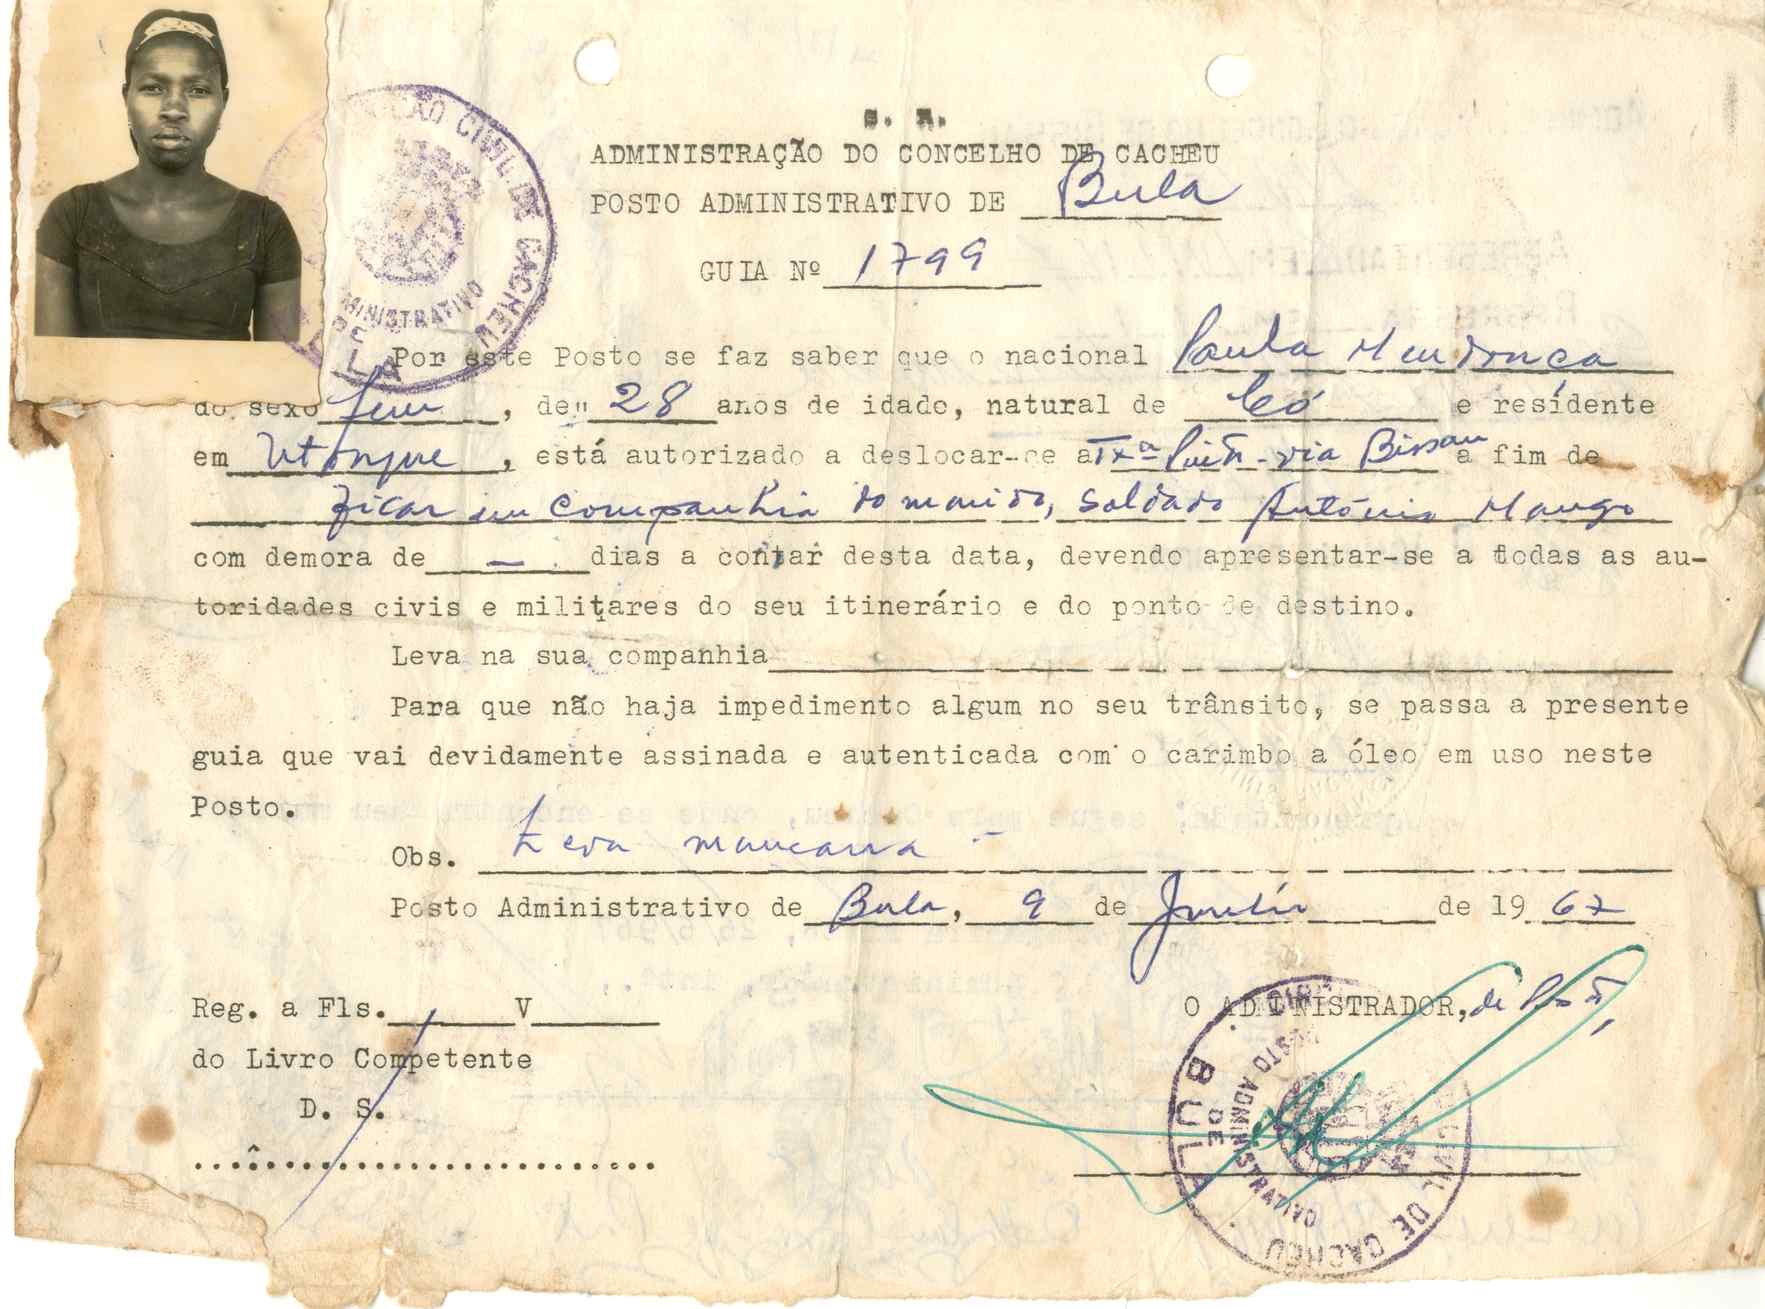 S. R.
ADMINISTRAÇÃO DO CONCELHO DE CACHEU
POSTO ADMINISTRATIVO DE Bula
GUIA Nº 1799
Por este Posto se faz saber que o nacional Paula Mendonca
do sexo fem, de 28 anos de idade, natural de Có e residente
em, está autorizado a deslocar-se a via Bissau a fim de
ficar em companhia do marido, soldado António Mango
com demora de — dias a contar desta data, devendo apresentar-se a todas as au-
toridades civis e militares do seu itinerário e do ponto de destino.
Leva na sua companhia
Para que não haja impedimento algum no seu trânsito, se passa a presente
guia que vai devidamente assinada e autenticada com o carimbo a óleo em uso neste
Posto.
Obs. Leva mancarra -
Posto Administrativo de Bula, 9 de Junho de 19 67
Reg. a Fls. V
O ADMINISTRADOR, de
do Livro Competente
D. S.
CIVIL DE CACHEU
POSTO ADMINISTRATIVO
DE
BULA